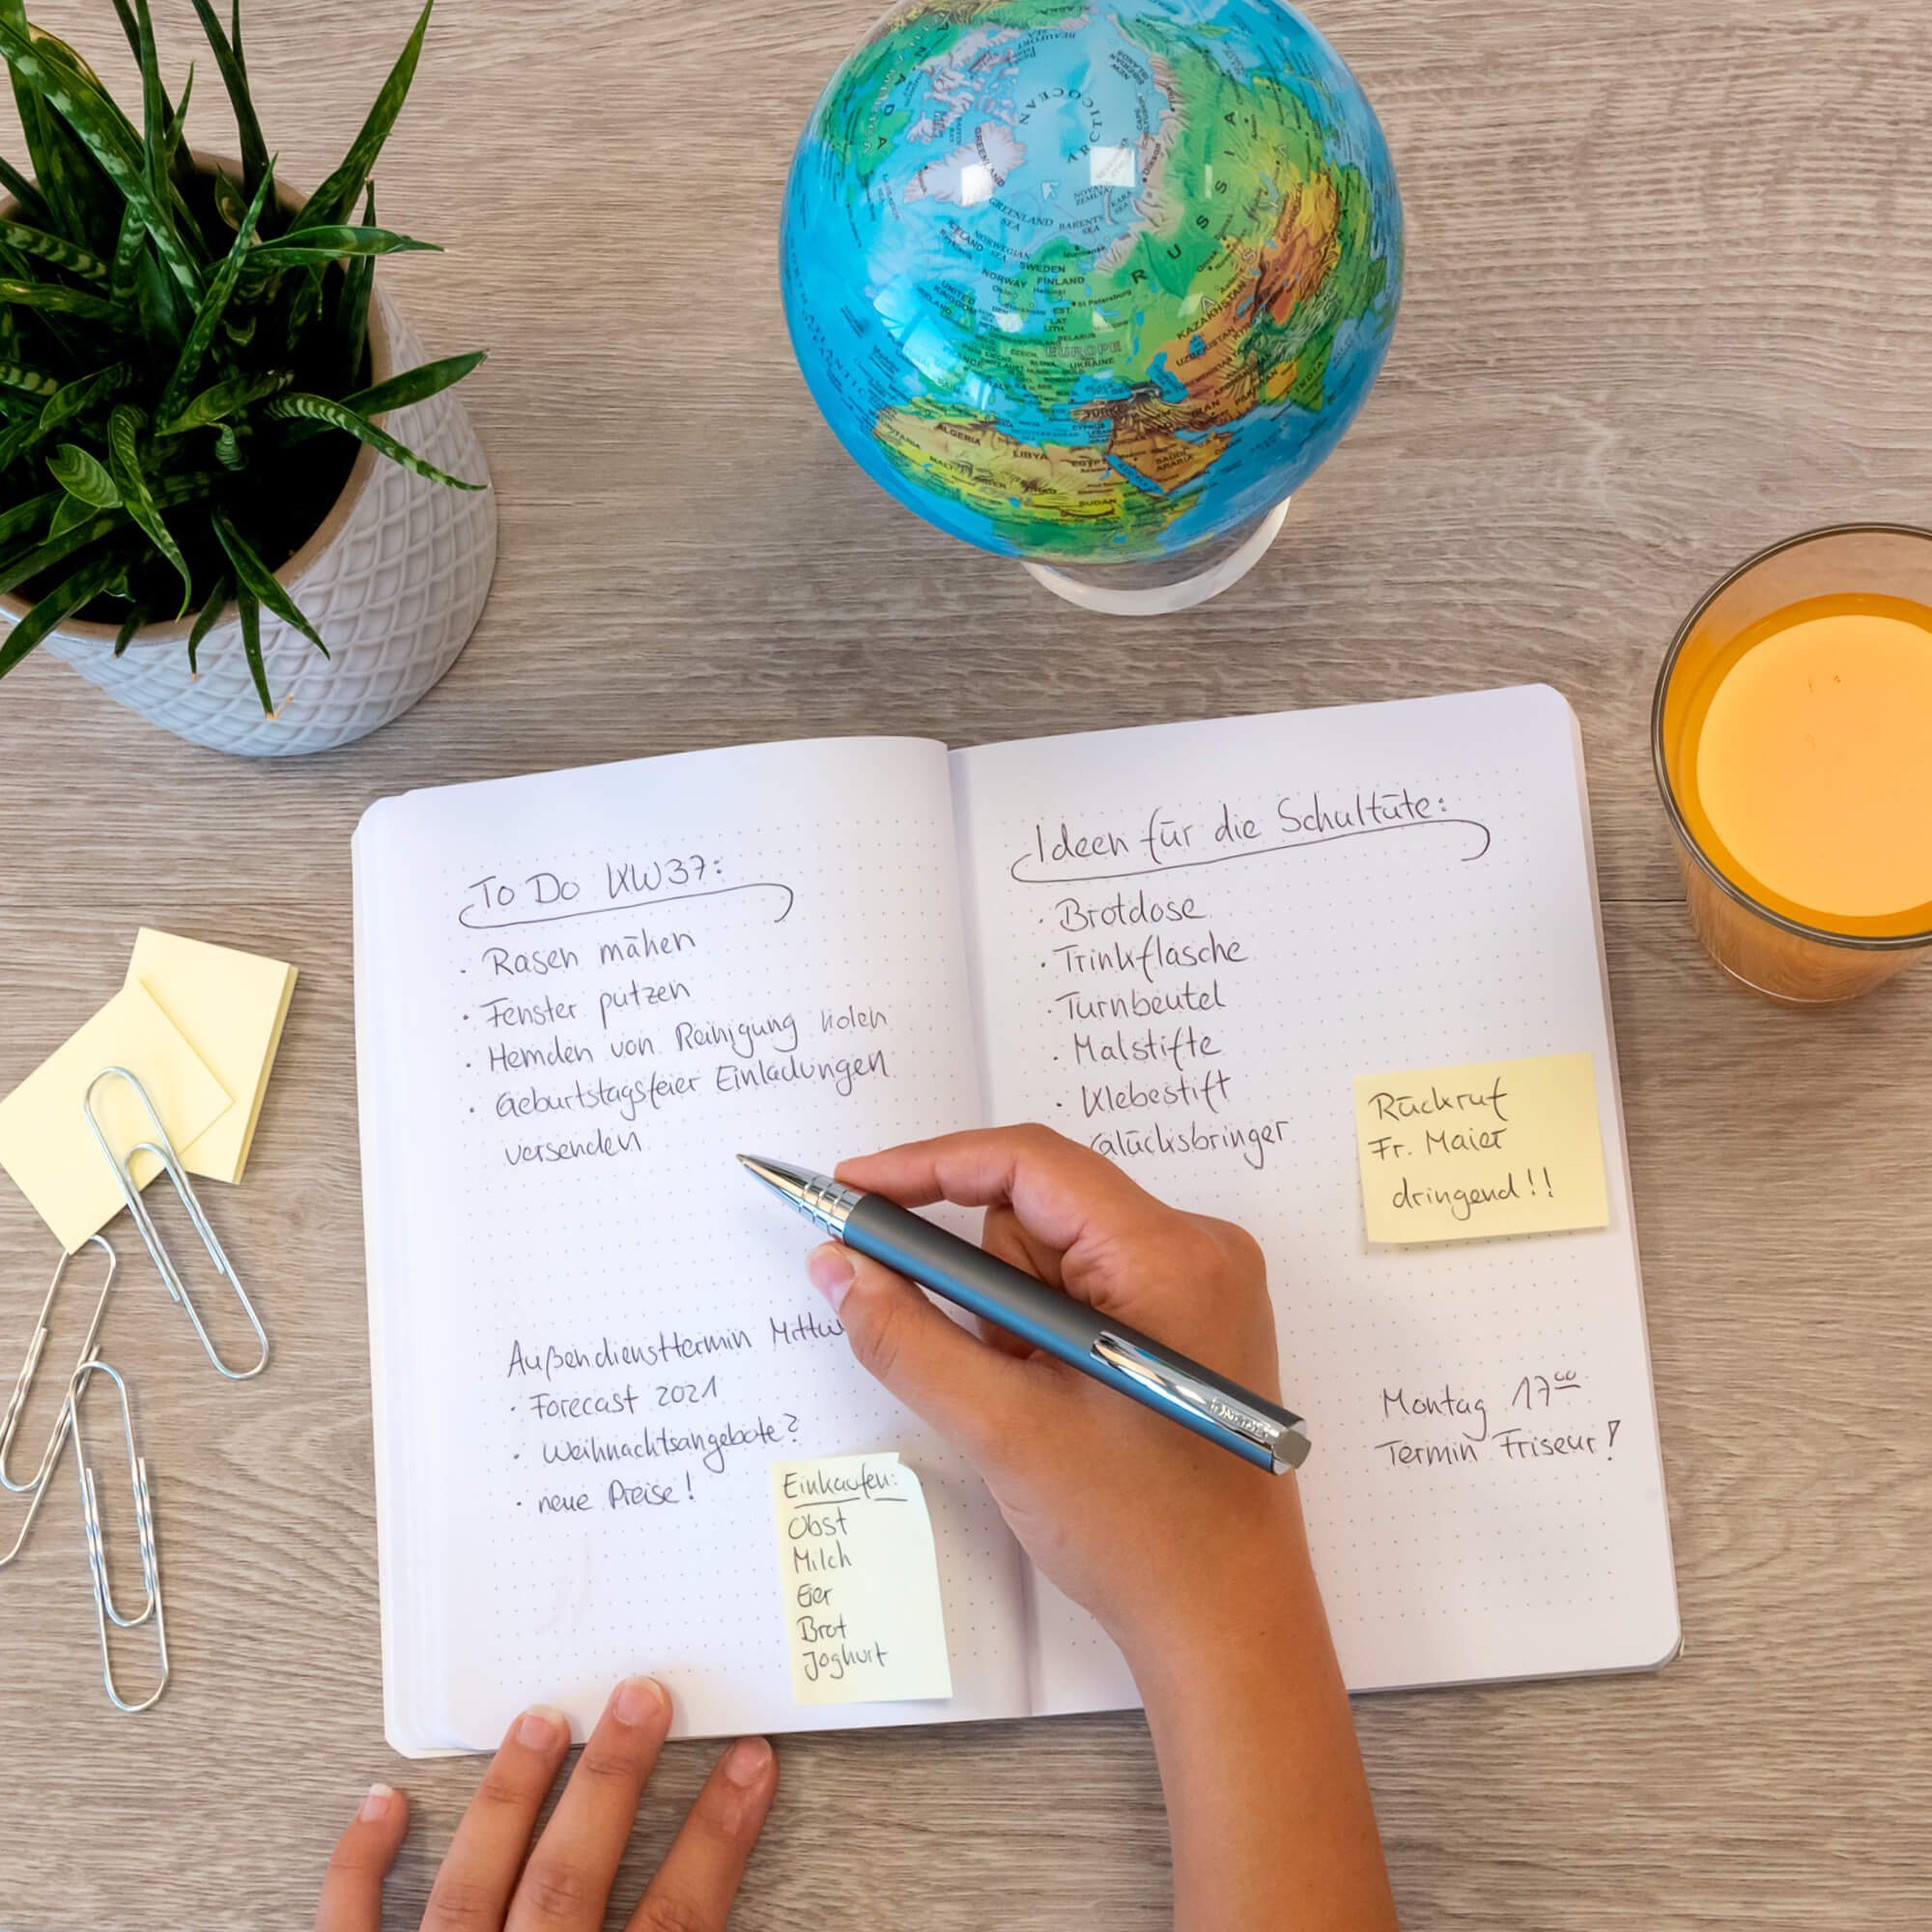 To Do KW37:
· Rasen mähen
· Fenster putzen
· Hemden von Reinigung holen
· Geburtstagsfeier Einladungen
versenden
Außendiensttermin
· Forecast 2021
· Weihnachtsangebote?
· neue Preise!
Einkaufen:
Obst
Milch
Eier
Brot
Joghurt
Ideen für die Schultüte:
· Brotdose
· Trinkflasche
· Turnbeutel
· Malstifte
· Klebestift
Glücksbringer
Rückruf
Fr. Maier
dringend!!
Montag 17⁰⁰
Termin Friseur!
CANADA
ARCTIC OCEAN
GREENLAND
GREENLAND
SEA
BARENTS
SEA
NORWEGIAN
SEA
SWEDEN
NORWAY FINLAND
RUSSIA
St Petersburg
UNITED
KINGDOM
IRELAND
EST.
LAT.
LITH.
BELARUS
EUROPE
UKRAINE
KAZAKHSTAN
UZBEKISTAN
IRAN
INDIA
ALGERIA
LIBYA
EGYPT
SAUDI
ARABIA
SUDAN